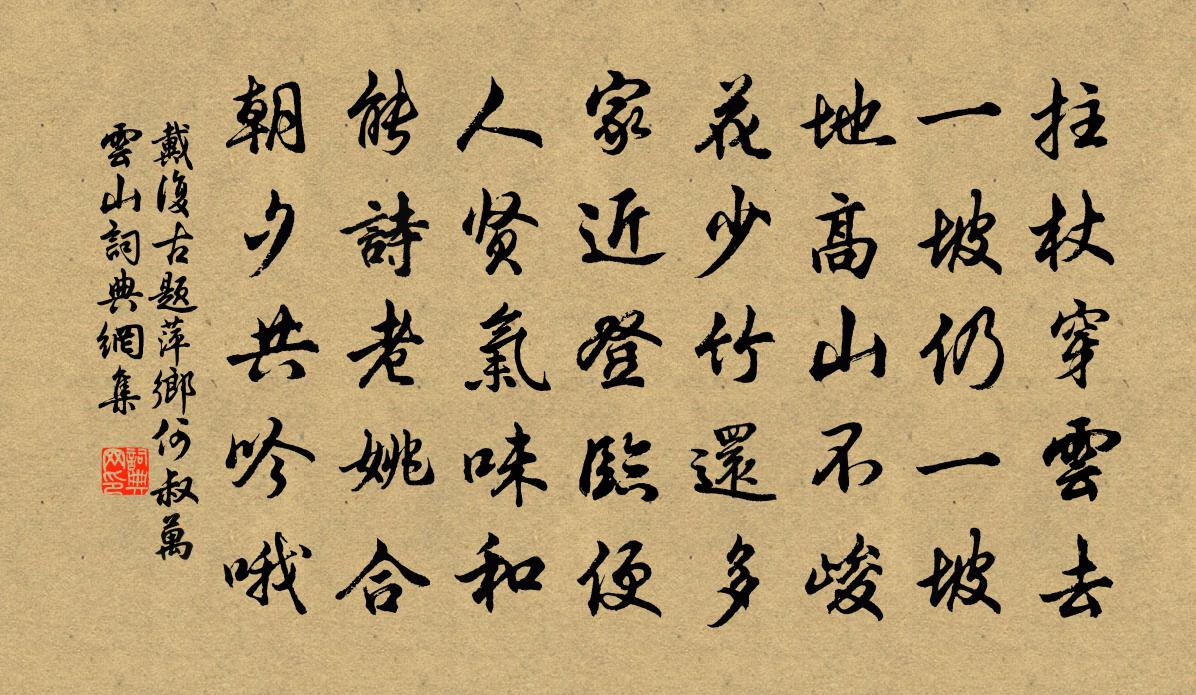 拄杖穿雲去
一坡仍一坡
地高山不峻
花少竹還多
家近登臨便
人贤氣味和
能詩老姚合
朝夕共吟哦
戴復古题萍鄉何叔萬
雲山詞典網集
詞典网印